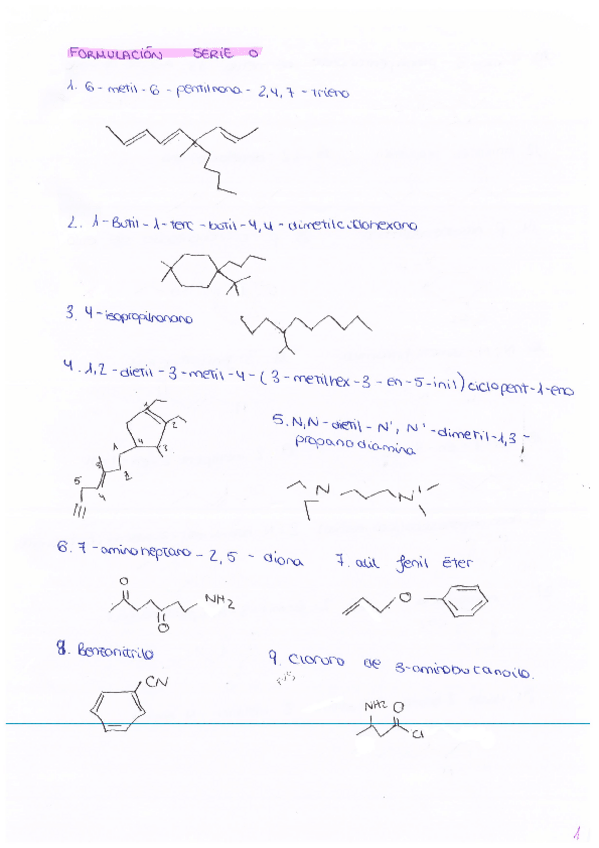 FORMULACIÓN SERIE 0
1. 6-metil-6-pentilnona-2,4,7-trieno
2. 1-Butil-1-terc-butil-4,4-dimetilciclohexano
3. 4-isopropilnonano
4. 1,2-dietil-3-metil-4-(3-metilhex-3-en-5-inil)ciclopent-1-eno
1
2
3
4
1
2
3
4
5
5. N,N-dietil-N',N'-dimetil-1,3-
propanodiamina
N
N
6. 7-aminoheptano-2,5-diona
O
NH2
O
7. alil fenil éter
O
8. Benzonitrilo
CN
9. Cloruro de 3-aminobutanoilo.
NH2 O
Cl
1